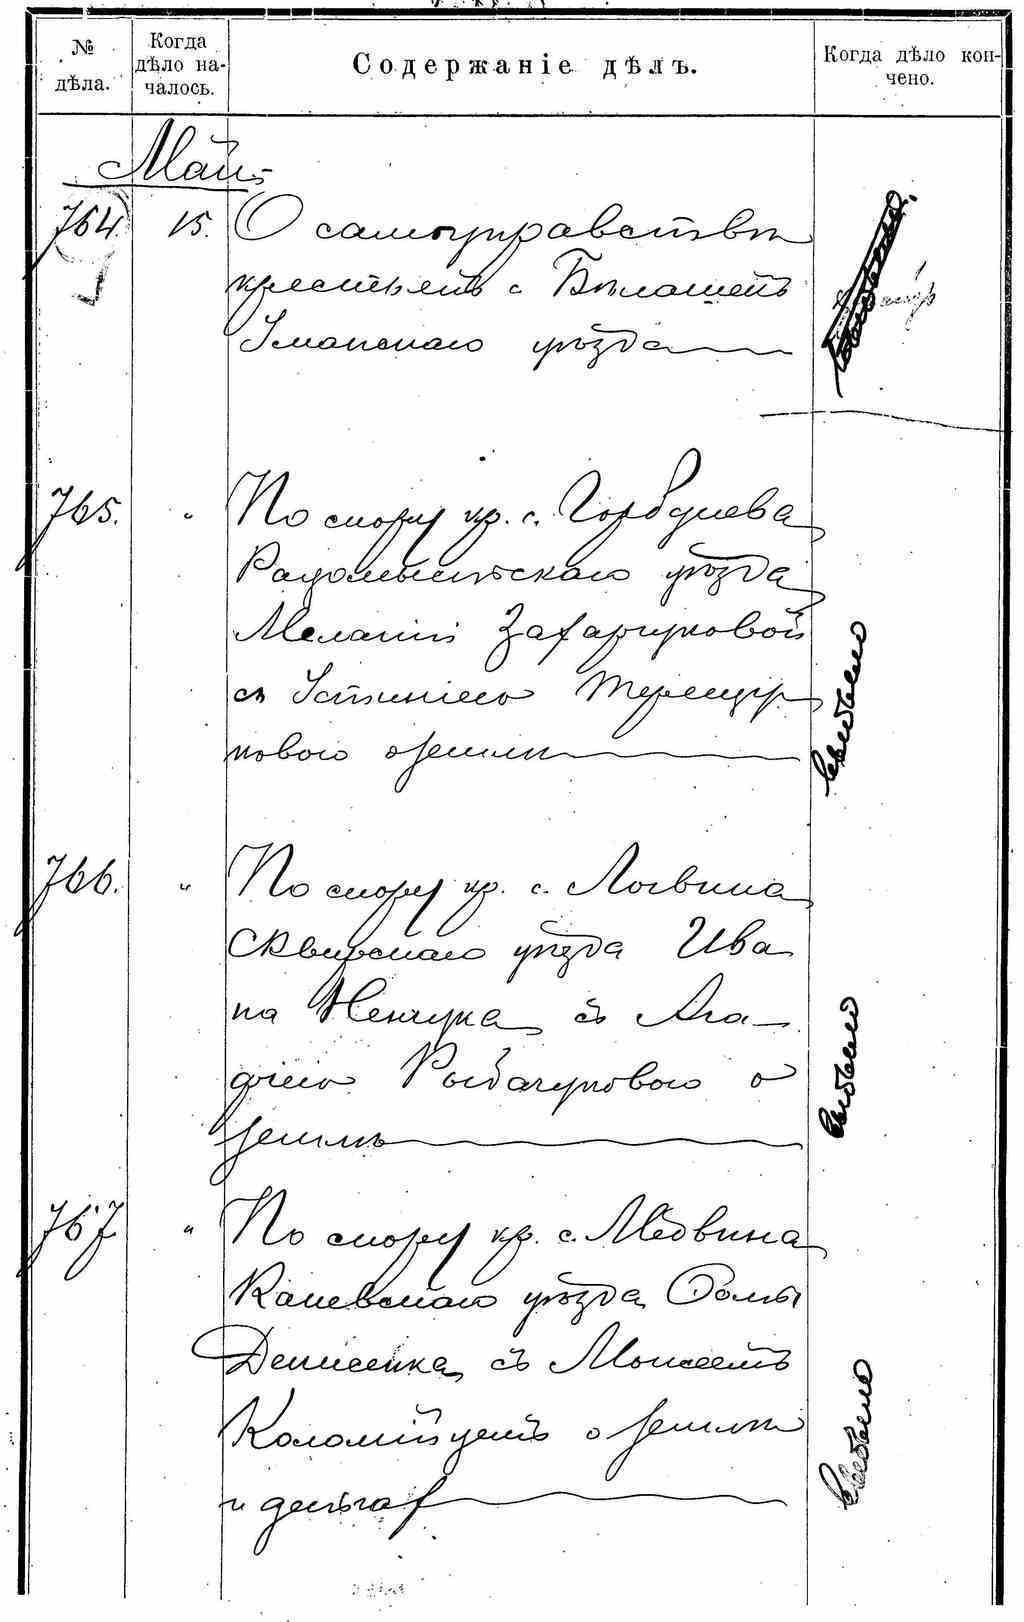 № дѣла.
Когда дѣло на-
чалось.
Содержаніе дѣлъ.
Когда дѣло кон-
чено.
Май
764. 15. О самоуправствѣ
крестьянъ с.
Уманскаго уѣзда
765. " По спору кр. с. Горбулева
Радомысльскаго уѣзда
Меланіи Захарчуковой
съ Устиніею Терещу
ковою о землѣ
766. " По спору кр. с. Логвина
Сквирскаго уѣзда Ива
на съ Ага
фіею Рыбачуковою о
землѣ
767 " По спору кр. с. Медвина
Каневскаго уѣзда Фомы
Денисенка съ Моисеемъ
Коломійцемъ о землѣ
и деньгах